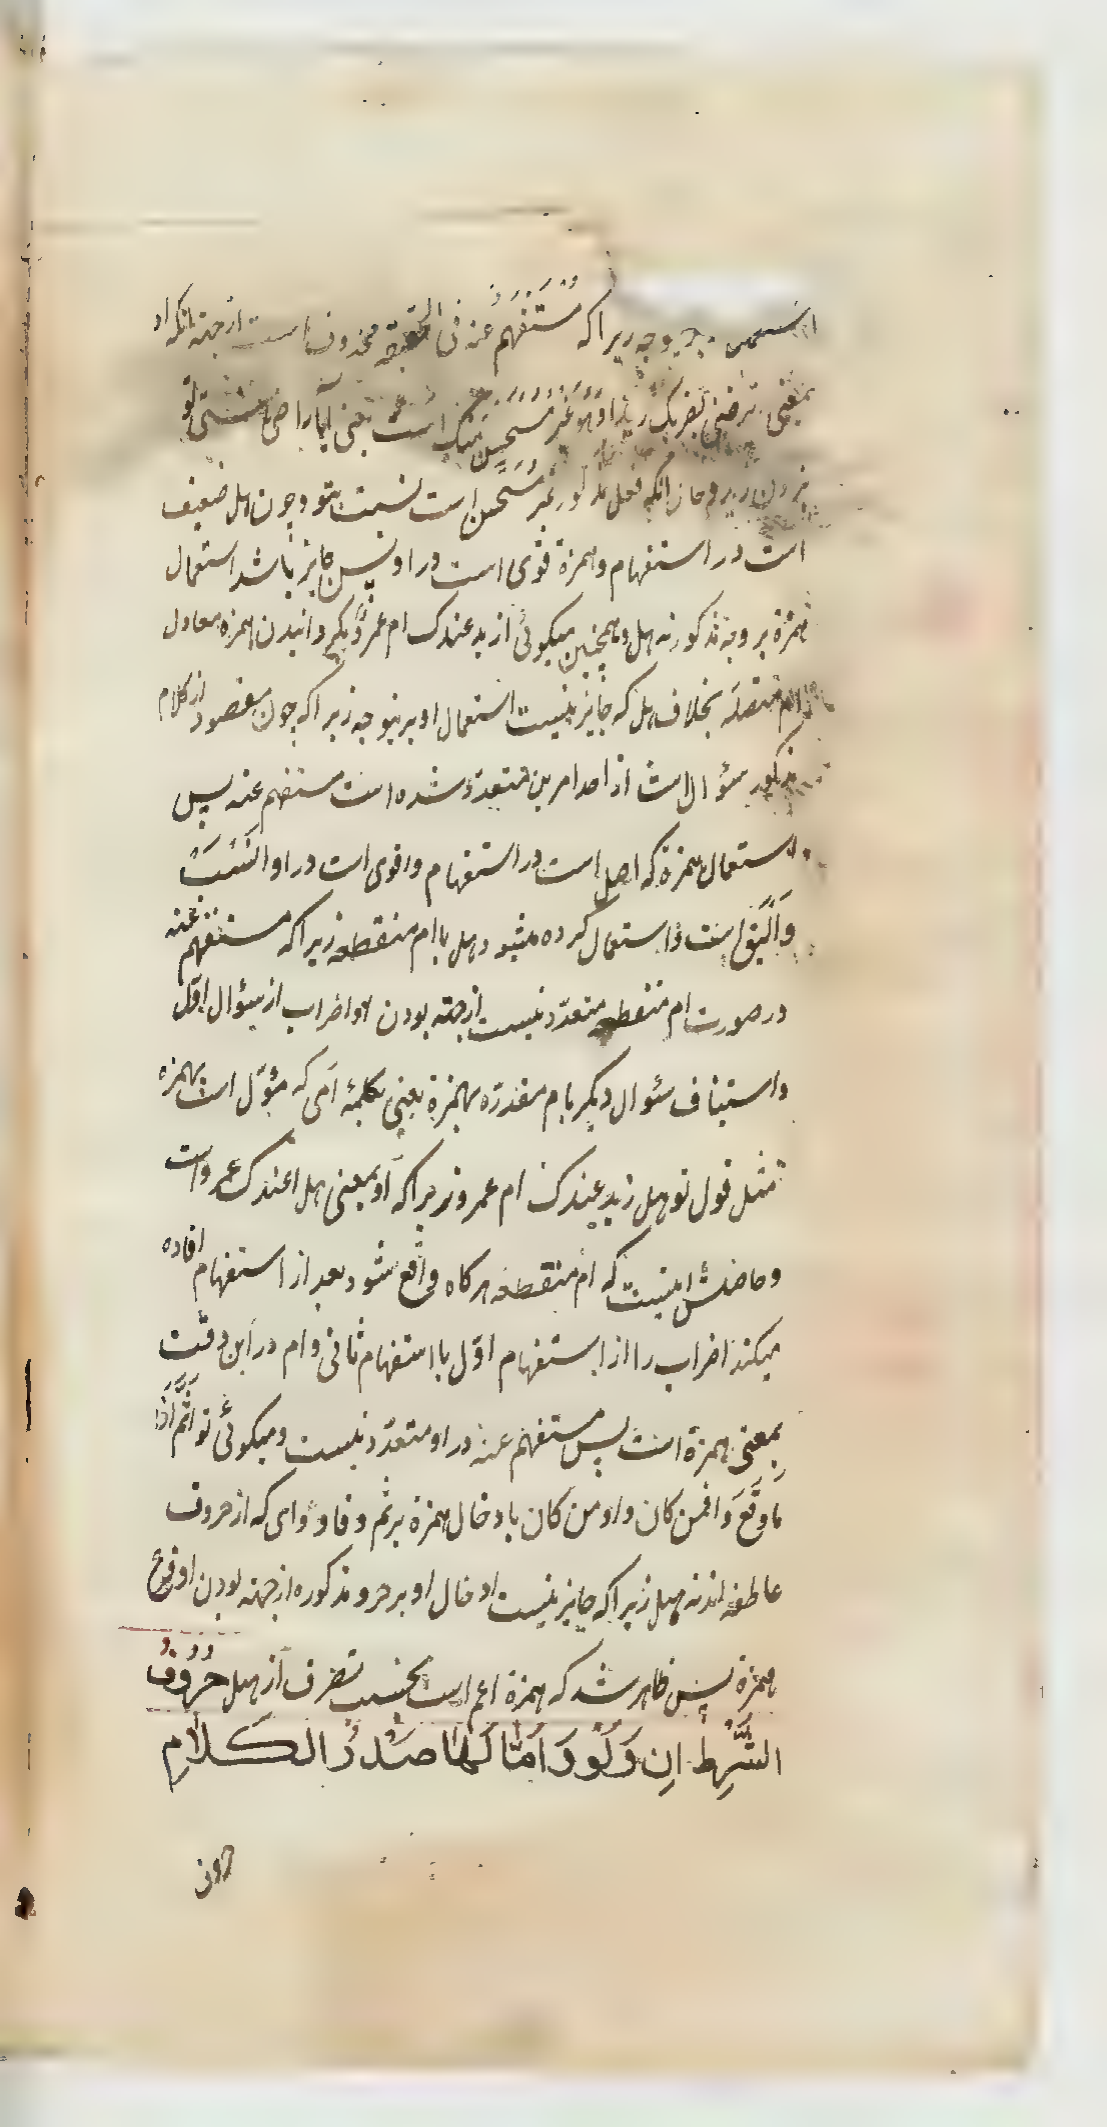 زیرا که مُسْتَفْهَمٌ عنه فی الحقیقة محذوف است از جهة آنکه او
بمعنی ترضی بضربک زیدا وَهُوَ غَیْرُ مُسْتَحْسَنٍ مِنْکَ است یعنی آیا راضی هستی تو
بزدن زید و حال آنکه فعل مذکور غیر مُسْتَحْسَن است نسبت بتو و چون هل ضعیف
است در استفهام و همزة قوی است در او پس جایز باشد استعمال
همزة بر وجه مذکور نه هل و همچنین میکوئی أزید عندک ام عمرو بکردانیدن همزه معادل
ام متصله بخلاف هل که جایز نیست استعمال او برینوجه زیرا که چون مقصود از کلام
مذکور سؤال است از احد امرین متعدد شده است مستفهم عنه پس
استعمال همزة که اصل است در استفهام و اقوی است در او انسب
و اَلْیَق است و استعمال کرده میشود هل با ام منقطعه زیرا که مستفهم عنه
در صورت ام منقطعه متعدّد نیست از جهة بودن او اضراب از سؤال اوّل
و استیناف سئوال دیکر بام مقدّره بهمزة یعنی بکلمهٔ امی که مؤوّل است بهمزه
مثل قول تو هل زید عندک ام عمرو زیرا که او بمعنی هل اعندک عمرو است
و حاصلش اینست که ام منقطعه هر کاه واقع شود بعد از استفهام افاده
میکند اضراب را از استفهام اوّل با استفهام ثانی و ام در این وقت
بمعنی همزة است پس مستفهم عنه در او متعدّد نیست و میکوئی تو اَثُمَّ اِذَا
مَا وَقَعَ وَ افمن کان و اومن کان با دخال همزة بر ثم و فا و واوی که از حروف
عاطفه اند نه هل زیرا که جایز نیست ادخال او بر حرو مذکوره از جهته بودن او فرع
همزة پس ظاهر شد که همزة اعم است بحسب تصرف از هل حُرُوفُ
الشَّرْطِ اِن وَلَوْ وَ اَمَّا لَهَا صَدْرُ الکَلامِ
حروف